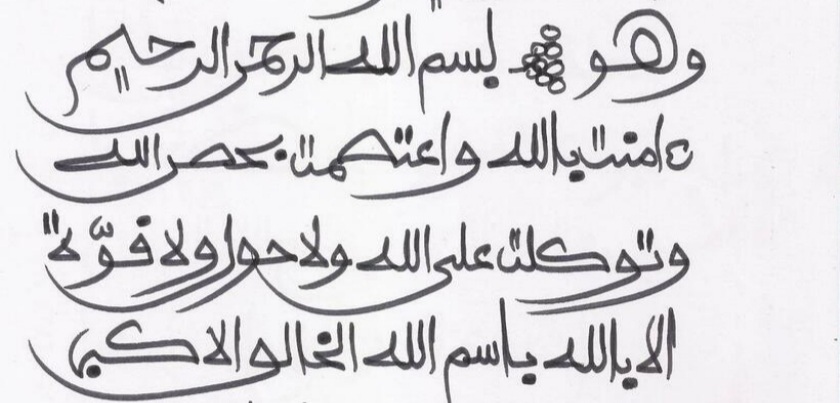 وهو بسم الله الرحمن الرحيم
ءامنت بالله واعتصمت بحصن الله
وتوكلت على الله ولا حول ولا قوّة
الا بالله باسم الله الخالق الاكبر